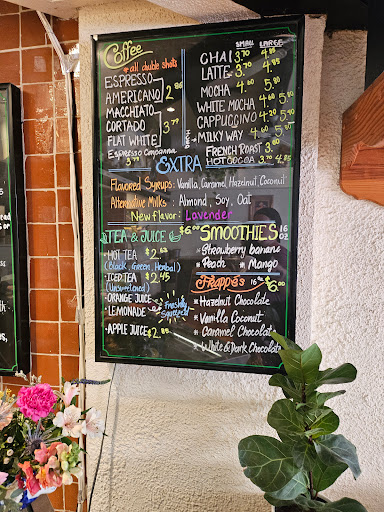 Coffee
* all double shots
ESPRESSO
AMERICANO 2.86
MACCHIATO
CORTADO 3.79
FLAT WHITE
Espresso Companna 3.79
SMALL LARGE
CHAI 3.70 4.85
LATTE 3.70 4.85
MOCHA 4.60 5.90
WHITE MOCHA 4.60 5.90
CAPPUCCINO 4.20 5.90
MILKY WAY 4.60 5.90
FRENCH ROAST 3.80
HOT COCOA 3.70 4.85
EXTRA
Flavored Syrups: Vanilla, Caramel, Hazelnut, Coconut
Alternative Milks: Almond, Soy, Oat
New flavor: Lavender
TEA & JUICE
HOT TEA $2.63
(Black, Green, Herbal)
ICED TEA $2.45
(Unsweetened)
ORANGE JUICE
LEMONADE
Freshly Squeezed
APPLE JUICE $2.80
$6.00 SMOOTHIES 16 oz
* Strawberry banana
* Peach * Mango
Frappés 16 oz $6.00
* Hazelnut Chocolate
* Vanilla Coconut
* Caramel Chocolate
* White & Dark Chocolate